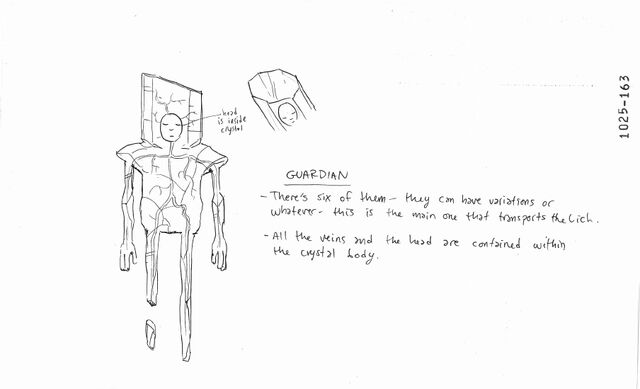 head
is inside
crystal
GUARDIAN
- There's six of them - they can have variations or
whatever - this is the main one that transports the Lich.
- All the veins and the head are contained within
the crystal body.
1025-163